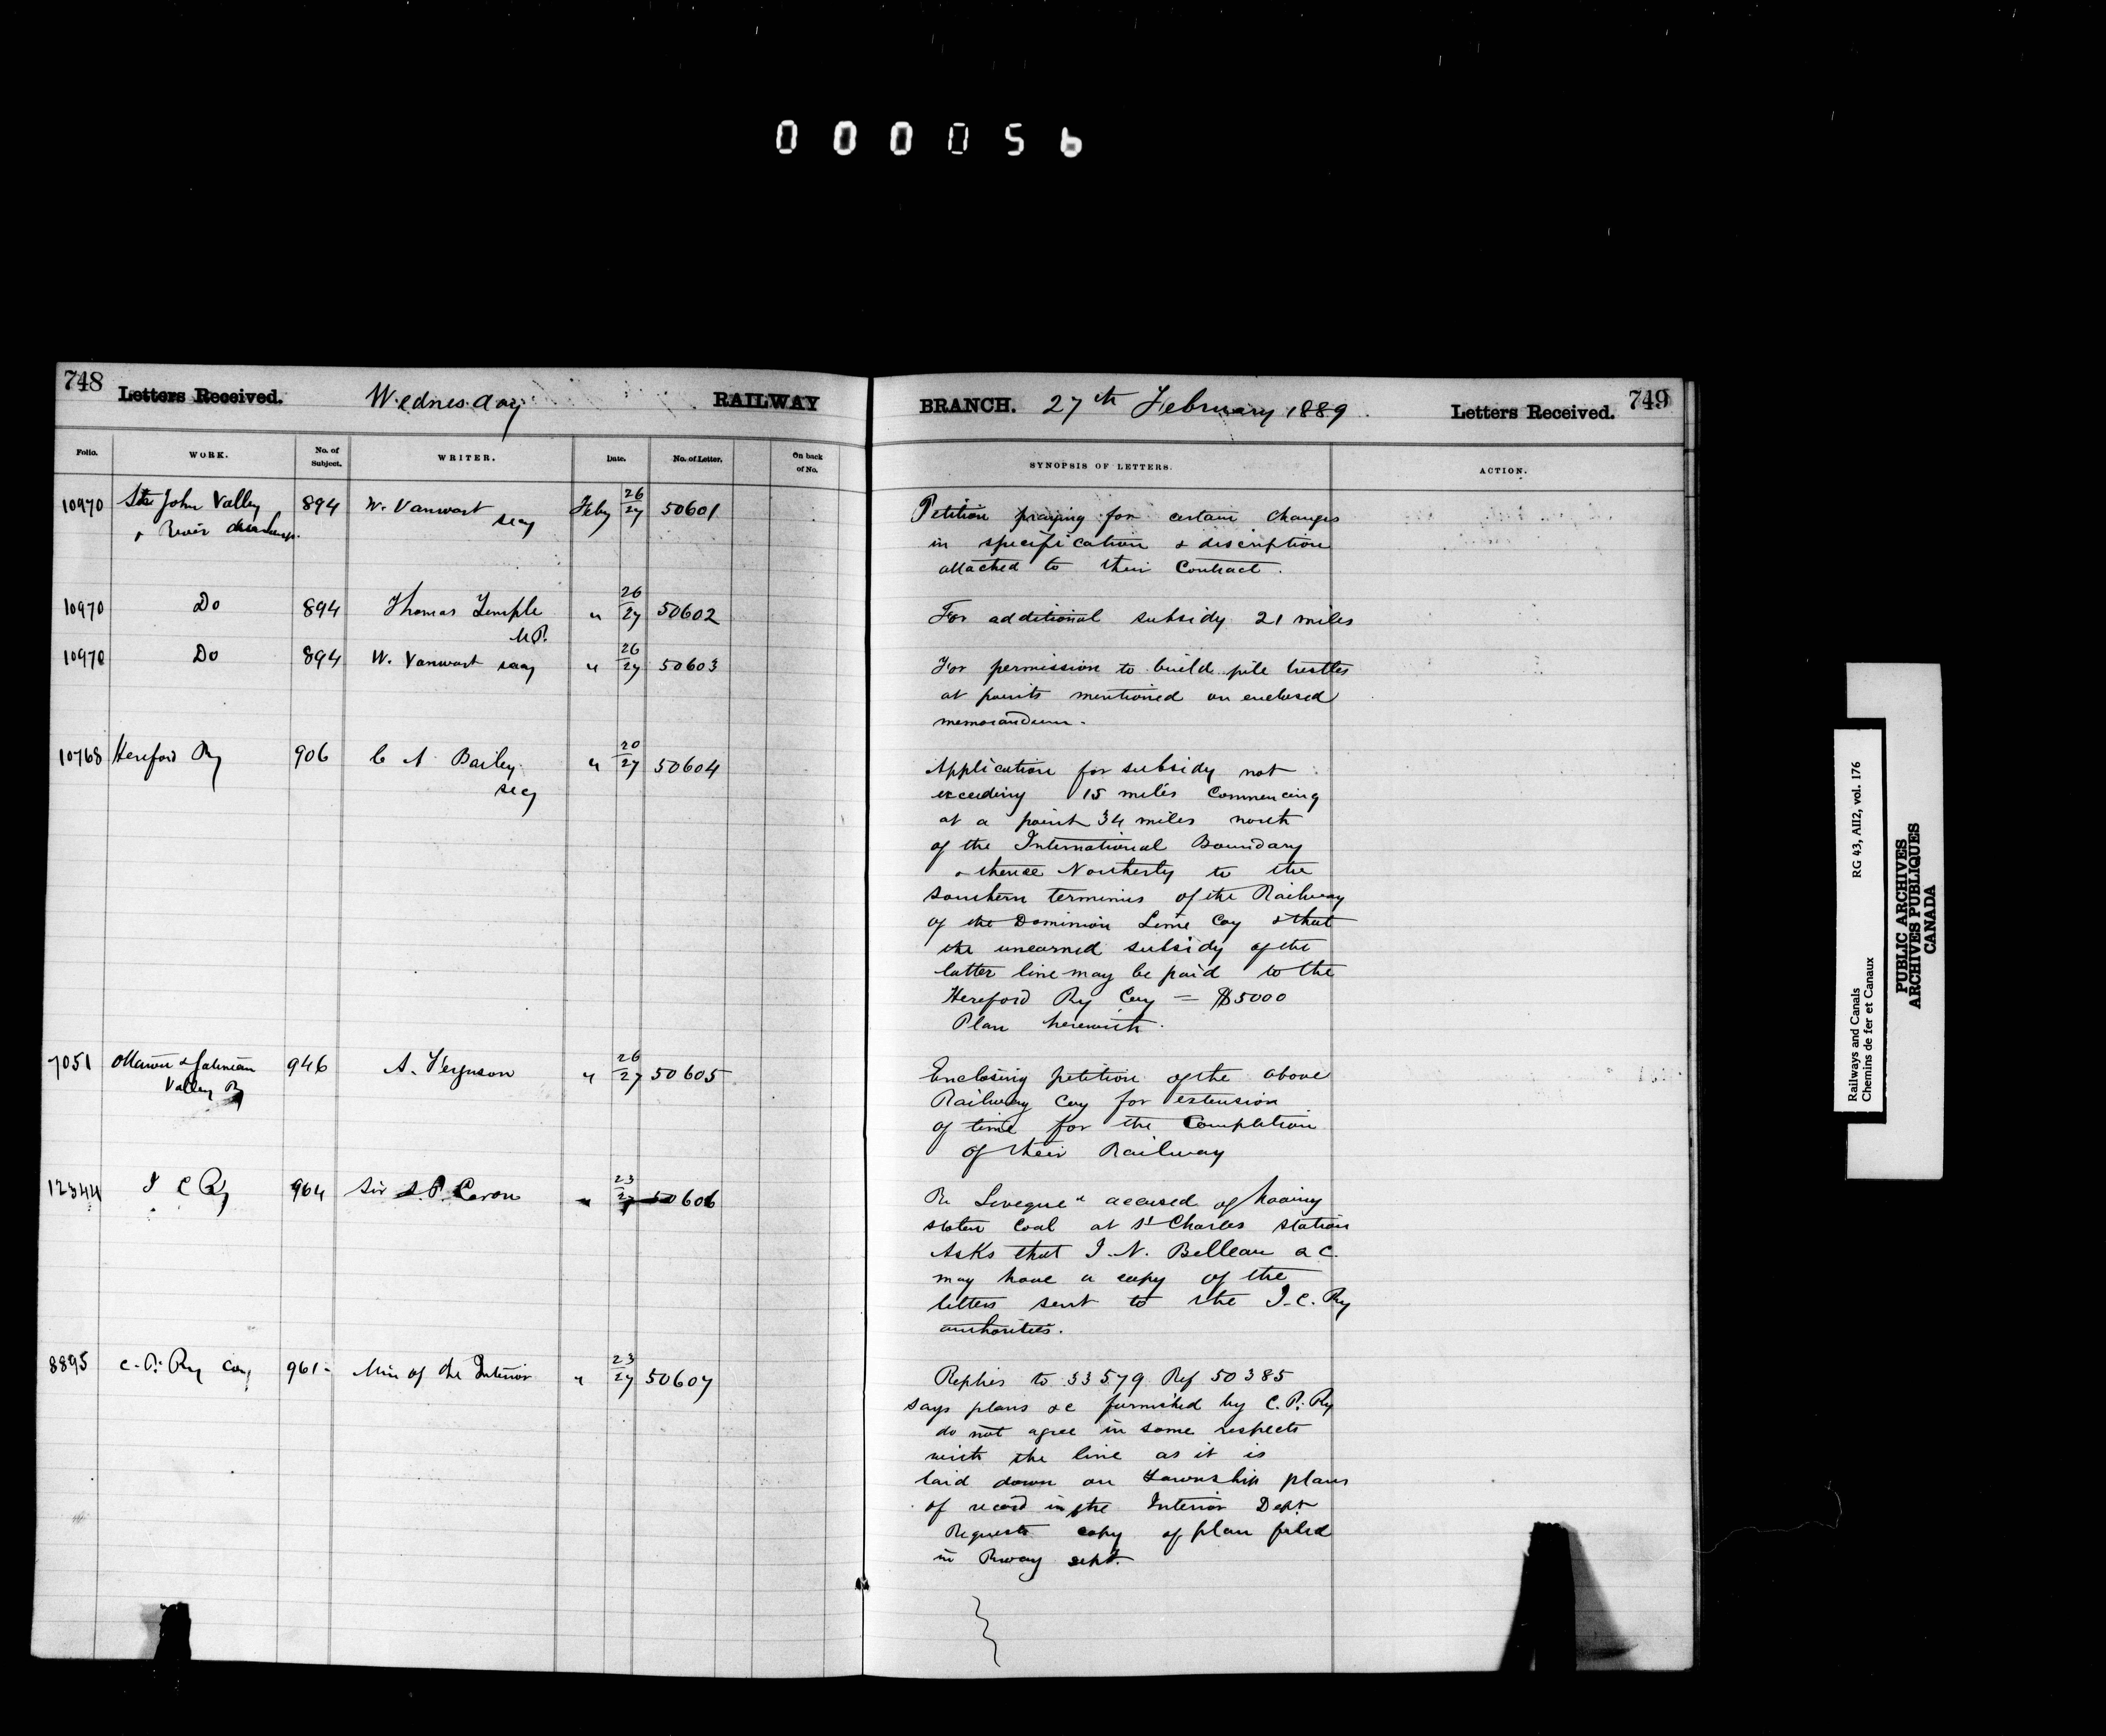 000056
748 Letters Received. Wednesday RAILWAY
BRANCH. 27th February 1889 Letters Received. 749
Folio. WORK. No. of Subject. WRITER. Date. No. of Letter. On back of No.
SYNOPSIS OF LETTERS. ACTION.
10970 St John Valley 894 W. Vanwart Feby 26/27 50601
& River secy
Petition praying for certain changes
in specification & discription
attached to their Contract.
10970 Do 894 Thomas Temple " 26/27 50602
M.P.
For additional subsidy 21 miles
10970 Do 894 W. Vanwart secy " 26/27 50603
For permission to build pile trestles
at points mentioned on enclosed
memorandum.
10768 Hereford Ry 906 C A Bailey " 20/27 50604
secy
Application for subsidy not
exceeding 15 miles Commencing
at a point 34 miles north
of the International Boundary
& thence Northerly to the
southern terminus of the Railway
of the Dominion Lime Coy & that
the unearned subsidy of the
latter line may be paid to the
Hereford Ry Coy = $5000
Plan herewith.
7051 Ottawa & Gatineau 946 A. Ferguson " 26/27 50605
Valley Ry
Enclosing petition of the above
Railway Coy for extension
of time for the Completion
of their Railway
12344 I C Ry 964 Sir A. P. Caron " 23/27 50606
Re Leveque" accused of having
stolen Coal at St Charles station
Asks that I. N. Belleau Q C.
may have a copy of the
letters sent to the I. C. Ry
authorities.
8895 C. P. Ry Coy 961 Min of the Interior " 23/27 50607
Replies to 33579 Ref 50385
says plans &c furnished by C. P. Ry
do not agree in some respects
with the line as it is
laid down on Township plans
of record in the Interior Dept
Requests copy of plan filed
in Rway dept.
Railways and Canals RG 43, AII2, vol. 176
Chemins de fer et Canaux
PUBLIC ARCHIVES
ARCHIVES PUBLIQUES
CANADA